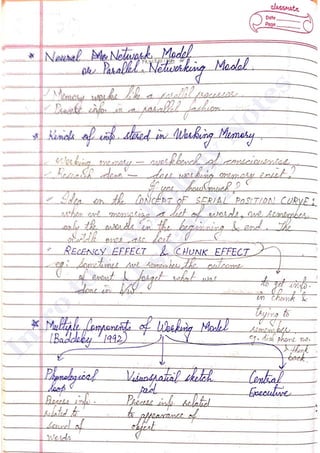 classmate
Date
Page
* Neural Network Model
or Parallel Networking Model.
✓ Memory works like a parallel processor
✓ info in a parallel fashion
* Kinds of info. stored in Working Memory
✓ Working memory - workbench of consciousness
✓ done - does working memory exist?
If yes, how much?
✓ Idea on the CONCEPT OF SERIAL POSITION CURVE:
when we memorise a list of words, we remember
only the words in the beginning & end. The
middle ones are lost
✓ RECENCY EFFECT & CHUNK EFFECT
eg: Sometimes we remember the outcome
of event & forget what was
done in b/w
to get info.
in chunk &
trying to
remember
eg. phone no.
back
* Multiple Components of Working Model
(Baddeley 1992)
Phonological Visuospatial sketch Central
loop pad Executive
Process info. Process info related
related to to appearance of
sound of object
words